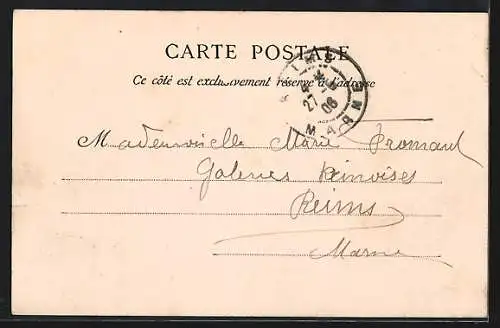 CARTE POSTALE
Ce côté est exclusivement réservé à l'adresse
REIMS
27 - 5
06
MARNE
Mademoiselle Marie
Galeries Rémoises
Reims
Marne